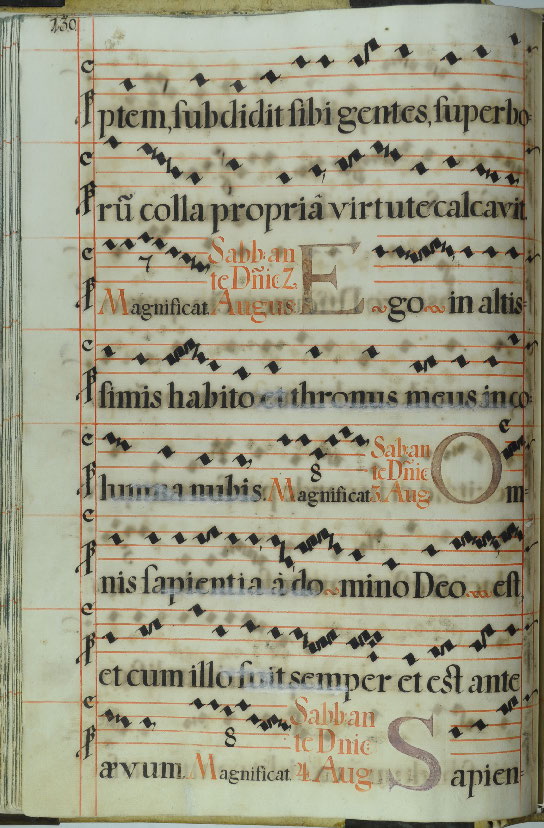 130
ptem, subdidit sibi gentes, superbo-
rũ colla propriâ virtute calcavit.
7
Sabb. an
te Dñic Z.
Magnificat. Augus
Ego in altis-
simis habito et thronus meus in co-
lumna nubis.
8
Magnificat.
Sab. an
te Dñic
3. Aug
Om-
nis sapientia â domino Deo est,
et cum illo fuit semper et est ante
ævum.
8
Magnificat.
Sabb. an
te Dnic
4. Aug
Sapien-